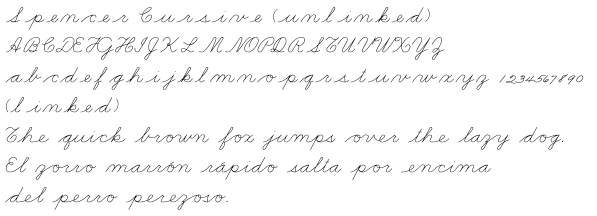 Spencer Cursive (unlinked)
ABCDEFGHIJKLMNOPQRSTUVWXYZ
abcdefghijklmnopqrstuvwxyz 1234567890
(linked)
The quick brown fox jumps over the lazy dog.
El zorro marrón rápido salta por encima
del perro perezoso.